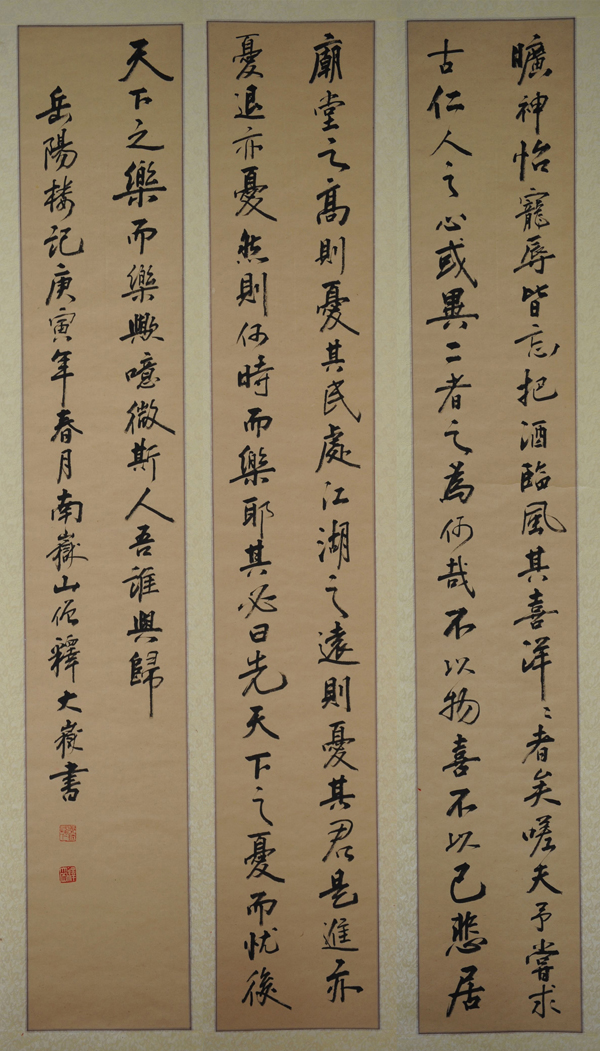 曠神怡寵辱皆忘把酒臨風其喜洋〻者矣嗟夫予嘗求
古仁人之心或異二者之為何哉不以物喜不以己悲居
廟堂之高則憂其民處江湖之遠則憂其君是進亦
憂退亦憂然則何時而樂耶其必曰先天下之憂而忧後
天下之樂而樂歟噫微斯人吾誰與歸
岳陽楼記庚寅年春月南嶽山僧釋大嶽书